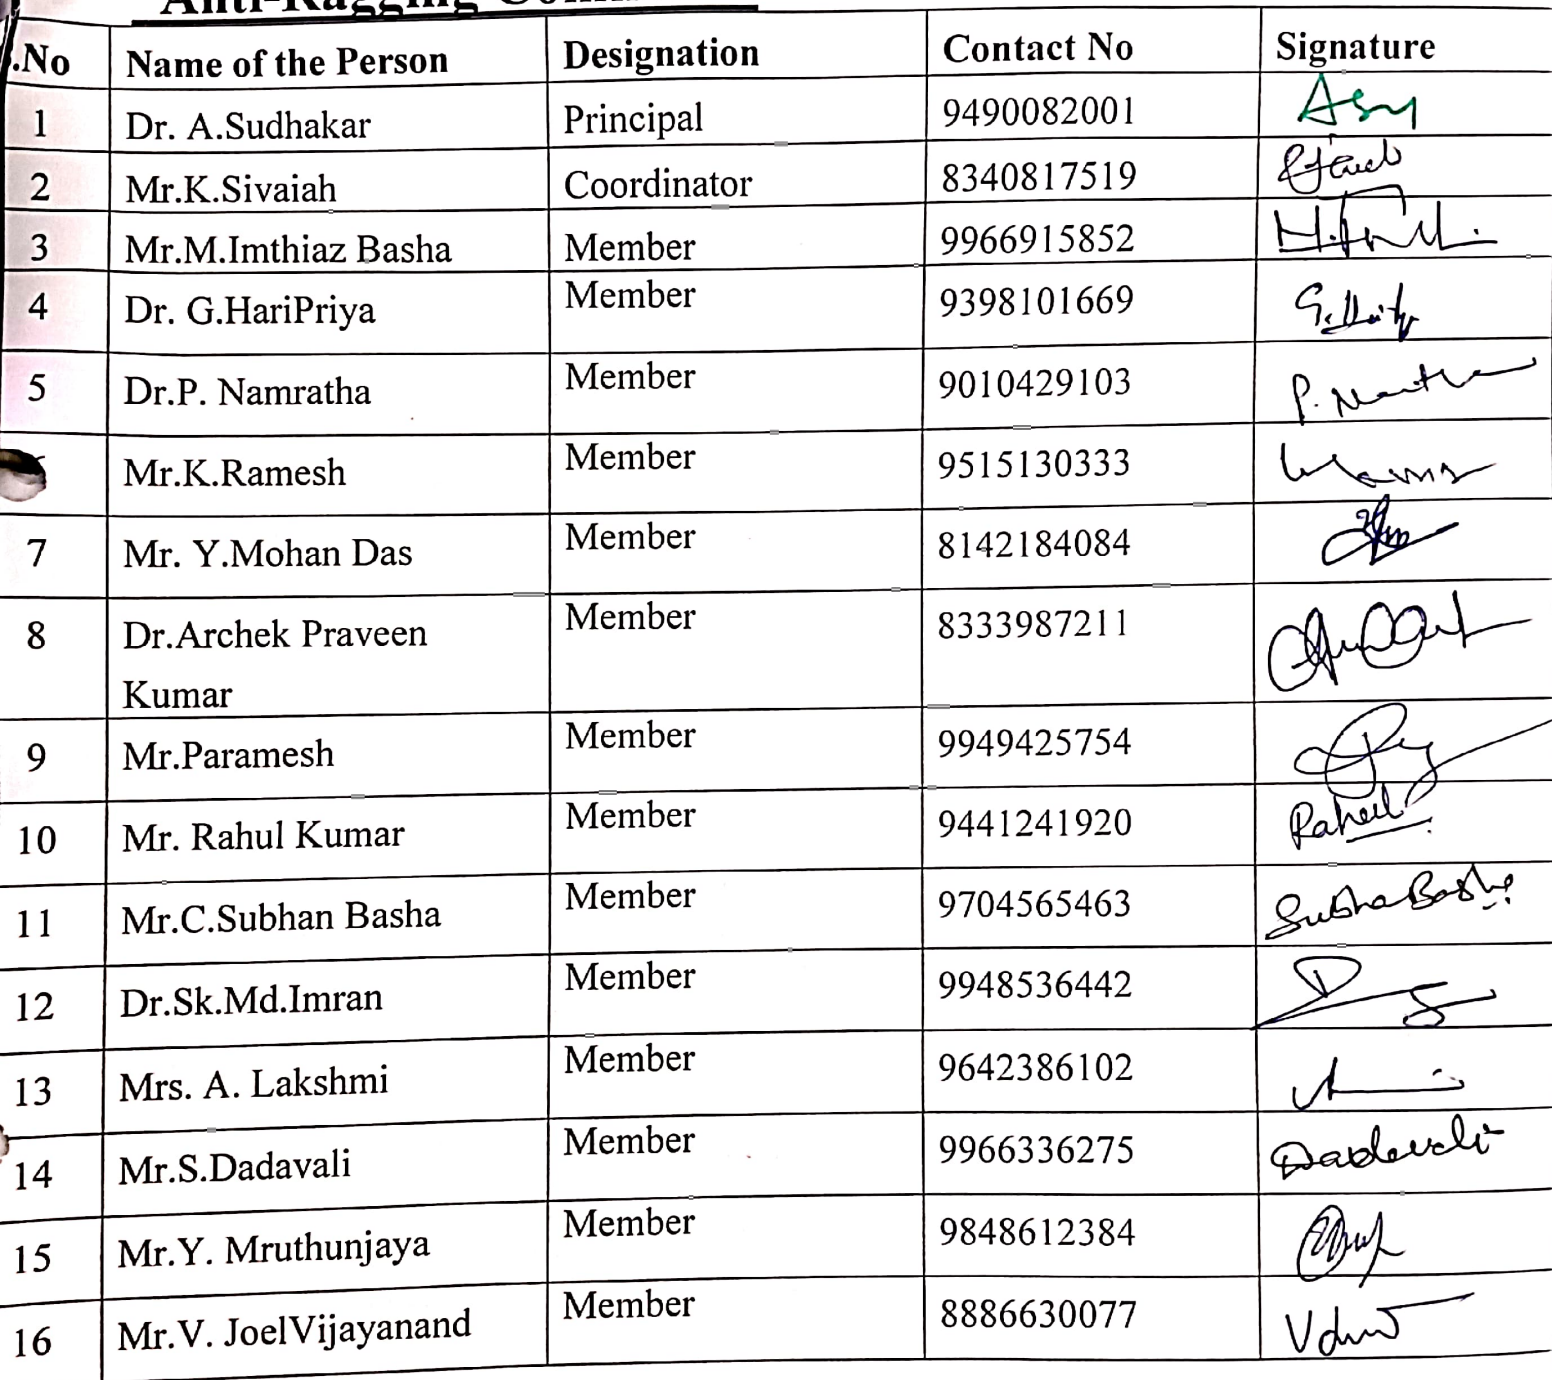 Anti-Ragging
.No Name of the Person Designation Contact No Signature
1 Dr. A.Sudhakar Principal 9490082001
2 Mr.K.Sivaiah Coordinator 8340817519
3 Mr.M.Imthiaz Basha Member 9966915852
4 Dr. G.HariPriya Member 9398101669
5 Dr.P. Namratha Member 9010429103
Mr.K.Ramesh Member 9515130333
7 Mr. Y.Mohan Das Member 8142184084
8 Dr.Archek Praveen Member 8333987211
Kumar
9 Mr.Paramesh Member 9949425754
10 Mr. Rahul Kumar Member 9441241920 Rahul
11 Mr.C.Subhan Basha Member 9704565463
12 Dr.Sk.Md.Imran Member 9948536442
13 Mrs. A. Lakshmi Member 9642386102
14 Mr.S.Dadavali Member 9966336275 Dadavali
15 Mr.Y. Mruthunjaya Member 9848612384
16 Mr.V. JoelVijayanand Member 8886630077